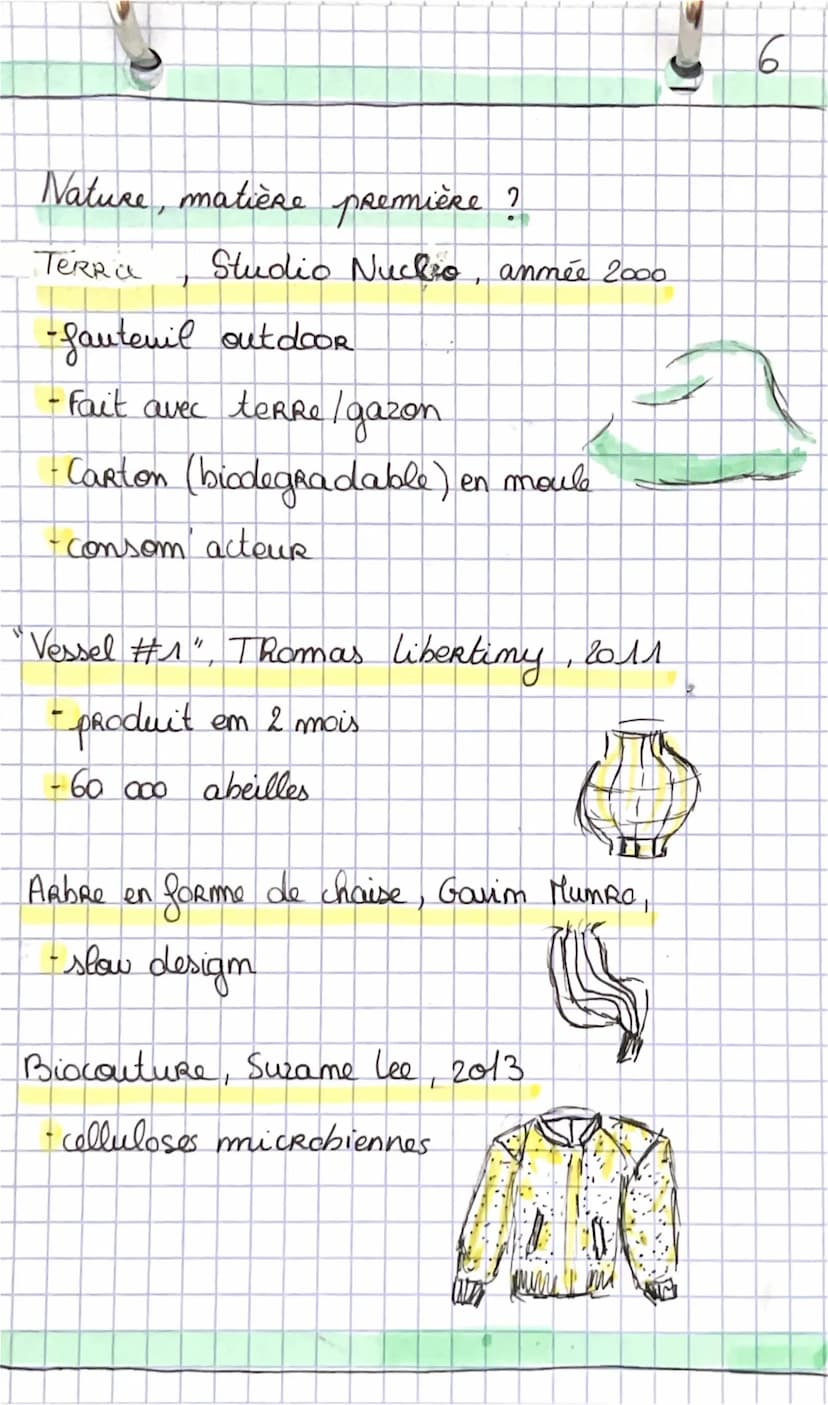 6
Nature, matière première ?
Terra, Studio Nucléo, année 2000
-fauteuil outdoor
-Fait avec terre/gazon
-Carton (biodegradable) en moule
-consom'acteur
"Vessel #1", Thomas Libertimy, 2011
-produit em 2 mois
-60 000 abeilles
Arbre en forme de chaise, Gavim Mumro,
-slow design
Biocouture, Suzame Lee, 2013
-celluloses microbiennes